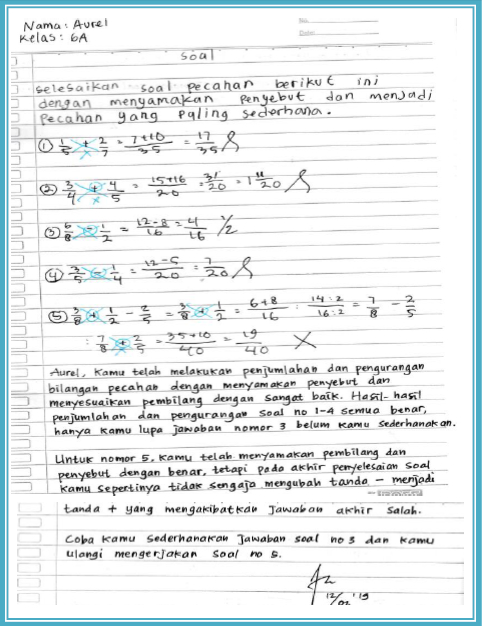 Nama : Aurel
Kelas : 6A
No.
Date:
Soal
Selesaikan soal pecahan berikut ini
dengan menyamakan penyebut dan menjadi
pecahan yang paling sederhana.
① 1/5 + 2/7 = 7+10/35 = 17/35
② 3/4 + 4/5 = 15+16/20 = 31/20 = 1 11/20
③ 6/8 - 1/2 = 12-8/16 = 4/16 1/2
④ 3/5 - 1/4 = 12-5/20 = 7/20
⑤ 3/8 + 1/2 - 2/5 = 3/8 + 1/2 = 6+8/16 : 14:2/16:2 = 7/8 - 2/5
: 7/8 + 2/5 = 35+10/40 = 19/40 ×
Aurel, kamu telah melakukan penjumlahan dan pengurangan
bilangan pecahan dengan menyamakan penyebut dan
menyesuaikan pembilang dengan sangat baik. Hasil-hasil
penjumlahan dan pengurangan soal no 1-4 semua benar,
hanya kamu lupa jawaban nomor 3 belum kamu sederhanakan.
Untuk nomor 5, kamu telah menyamakan pembilang dan
penyebut dengan benar, tetapi pada akhir penyelesaian soal
kamu sepertinya tidak sengaja mengubah tanda - menjadi
tanda + yang mengakibatkan jawaban akhir salah.
Coba kamu sederhanakan jawaban soal no 3 dan kamu
ulangi mengerjakan soal no 5.
12/02 '19